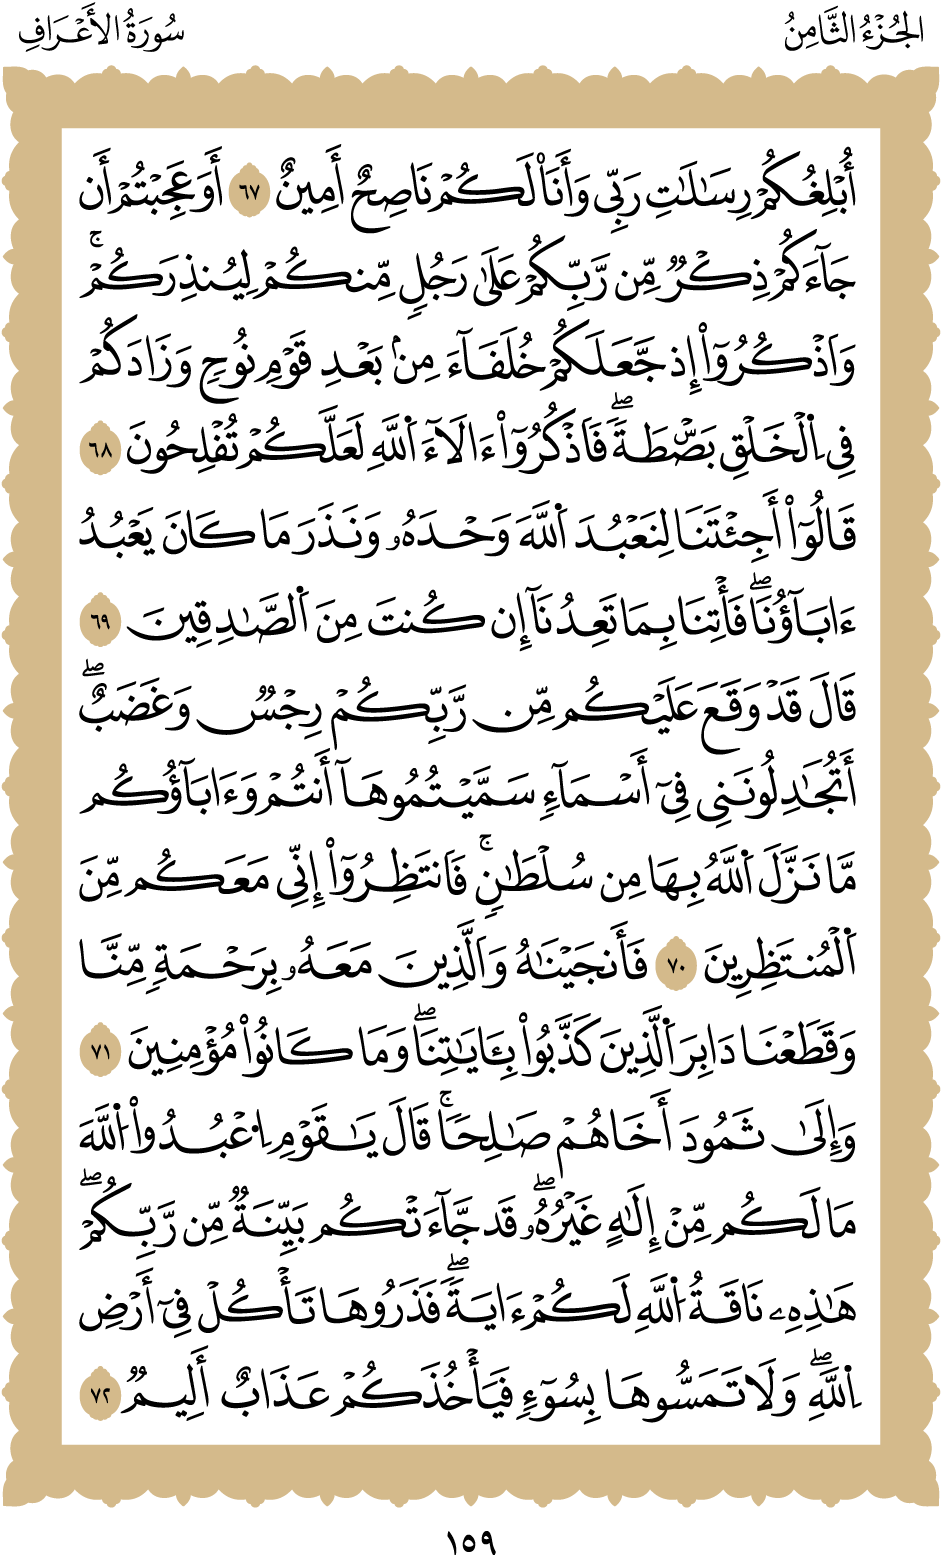 الجُزْءُ الثَّامِنُ
سُورَةُ الأَعْرَافِ
أُبْلِغُكُمْ رِسَٰلَٰتِ رَبِّى وَأَنَا۠ لَكُمْ نَاصِحٌ أَمِينٌ ٦٧ أَوَعَجِبْتُمْ أَن
جَآءَكُمْ ذِكْرٌ مِّن رَّبِّكُمْ عَلَىٰ رَجُلٍ مِّنكُمْ لِيُنذِرَكُمْ ۚ
وَاَذْكُرُوٓا۟ إِذ جَّعَلَكُمْ خُلَفَآءَ مِنۢ بَعْدِ قَوْمِ نُوحٍ وَزَادَكُمْ
فِى اِ۬لْخَلْقِ بَصْۜطَةً ۖ فَاَذْكُرُوٓا۟ ءَالَآءَ اَ۬للَّهِ لَعَلَّكُمْ تُفْلِحُونَ ٦٨
قَالُوٓا۟ أَجِئْتَنَا لِنَعْبُدَ اَ۬للَّهَ وَحْدَهُۥ وَنَذَرَ مَا كَانَ يَعْبُدُ
ءَابَآؤُنَا ۖ فَأْتِنَا بِمَا تَعِدُنَآ إِن كُنتَ مِنَ اَ۬لصَّٰدِقِينَ ٦٩
قَالَ قَدْ وَقَعَ عَلَيْكُم مِّن رَّبِّكُمْ رِجْسٌ وَغَضَبٌ ۖ
أَتُجَٰدِلُونَنِى فِىٓ أَسْمَآءٍ سَمَّيْتُمُوهَآ أَنتُمْ وَءَابَآؤُكُم
مَّا نَزَّلَ اَ۬للَّهُ بِهَا مِن سُلْطَٰنٍ ۚ فَاَنتَظِرُوٓا۟ إِنِّى مَعَكُم مِّنَ
اَ۬لْمُنتَظِرِينَ ٧٠ فَأَنجَيْنَٰهُ وَاَلَّذِينَ مَعَهُۥ بِرَحْمَةٍ مِّنَّا
وَقَطَعْنَا دَابِرَ اَ۬لَّذِينَ كَذَّبُوا۟ بِـَٔايَٰتِنَا ۖ وَمَا كَانُوا۟ مُؤْمِنِينَ ٧١
وَإِلَىٰ ثَمُودَ أَخَاهُمْ صَٰلِحًا ۚ قَالَ يَٰقَوْمِ اِ۟عْبُدُوا۟ اُ۬للَّهَ
مَا لَكُم مِّنْ إِلَٰهٍ غَيْرُهُۥ ۖ قَد جَّآءَتْكُم بَيِّنَةٌ مِّن رَّبِّكُمْ ۖ
هَٰذِهِۦ نَاقَةُ اُ۬للَّهِ لَكُمْ ءَايَةً ۖ فَذَرُوهَا تَأْكُلْ فِىٓ أَرْضِ
اِ۬للَّهِ ۖ وَلَا تَمَسُّوهَا بِسُوٓءٍ فَيَأْخُذَكُمْ عَذَابٌ أَلِيمٌ ٧٢
١٥٩